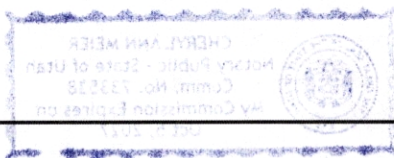 CHERYL ANN MEIER
Notary Public - State of Utah
Comm. No. 733538
My Commission Expires on
Oct 5, 2017